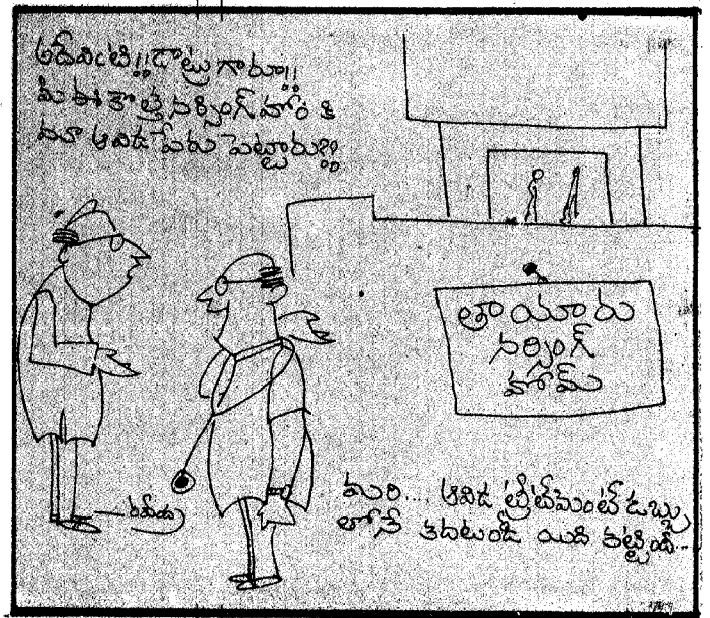 అదేమిటి!! డాట్రుగారూ!!
మీ ఈ కొత్త నర్సింగ్ హోం కి
మా ఆవిడ పేరు పెట్టారు??
తాయారు
నర్సింగ్
హోమ్
మరి... ఆవిడ ట్రీట్‌మెంట్ డబ్బు
లోనే కదటండీ యిది కట్టింది...